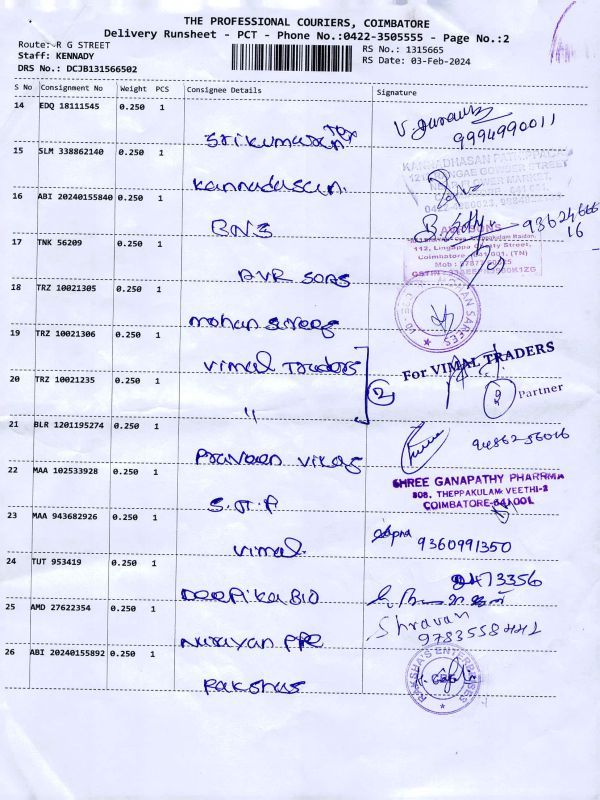 THE PROFESSIONAL COURIERS, COIMBATORE
Delivery Runsheet - PCT - Phone No.:0422-3505555 - Page No.:2
Route: R G STREET
RS No.: 1315665
Staff: KENNADY
RS Date: 03-Feb-2024
DRS No.: DCJB131566502
S No Consignment No Weight PCS Consignee Details Signature
14 EDQ 18111545 0.250 1
Srikumaran Tex
9994990011
15 SLM 338862140 0.250 1
Kannadasan.
16 ABI 20240155840 0.250 1
BNS
17 TNK 56209 0.250 1
AVR SONS
112, Lingappa Chetty Street,
Coimbatore
18 TRZ 10021305 0.250 1
mohan sarees
MOHAN SAREES
19 TRZ 10021306 0.250 1
Vimal Traders
For VIMAL TRADERS
2
Partner
20 TRZ 10021235 0.250 1
"
21 BLR 1201195274 0.250 1
Praveen Vikas
22 MAA 102533928 0.250 1
S.G.P
SHREE GANAPATHY PHARRMA
808, THEPPAKULAM VEETHI-3
COIMBATORE-641001
23 MAA 943682926 0.250 1
Vimal
9360991350
24 TUT 953419 0.250 1
Deepika BIO
25 AMD 27622354 0.250 1
Shravan
Narayan
26 ABI 20240155892 0.250 1
Rakshas
RAKSHA'S ENTERPRISES